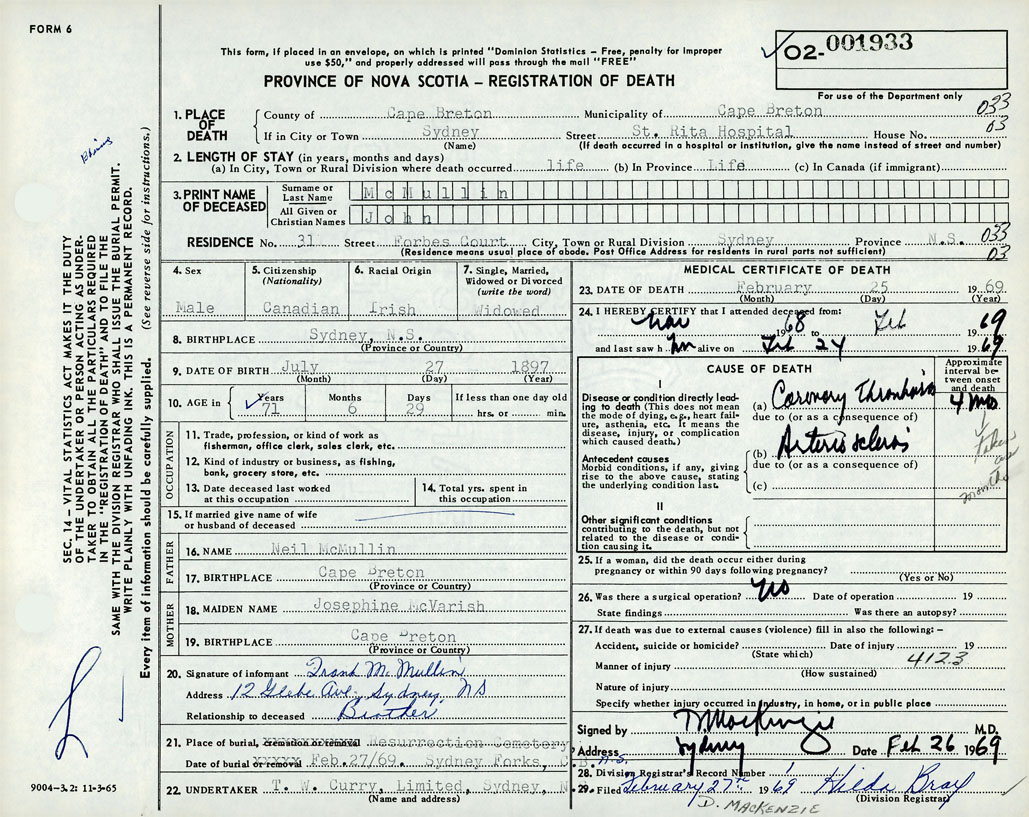 FORM 6
This form, if placed in an envelope, on which is printed "Dominion Statistics – Free, penalty for improper
use $50," and properly addressed will pass through the mail "FREE"
O2- 001933
For use of the Department only
PROVINCE OF NOVA SCOTIA – REGISTRATION OF DEATH
SEC. 14 – VITAL STATISTICS ACT MAKES IT THE DUTY
OF THE UNDERTAKER OR PERSON ACTING AS UNDER-
TAKER TO OBTAIN ALL THE PARTICULARS REQUIRED
IN THE "REGISTRATION OF DEATH" AND TO FILE THE
SAME WITH THE DIVISION REGISTRAR WHO SHALL ISSUE THE BURIAL PERMIT.
WRITE PLAINLY WITH UNFADING INK. THIS IS A PERMANENT RECORD.
Every item of information should be carefully supplied. (See reverse side for instructions.)
1. PLACE OF DEATH
County of Cape Breton Municipality of Cape Breton 033
If in City or Town Sydney Street St. Rita Hospital House No. 03
(Name) (If death occurred in a hospital or institution, give the name instead of street and number)
2. LENGTH OF STAY (in years, months and days)
(a) In City, Town or Rural Division where death occurred life (b) In Province Life (c) In Canada (if immigrant)
3. PRINT NAME OF DECEASED
Surname or Last Name McMullin
All Given or Christian Names John
RESIDENCE No. 31 Street Forbes Court City, Town or Rural Division Sydney Province N.S. 033
(Residence means usual place of abode. Post Office Address for residents in rural parts not sufficient) 03
4. Sex
Male
5. Citizenship
(Nationality)
Canadian
6. Racial Origin
Irish
7. Single, Married,
Widowed or Divorced
(write the word)
Widowed
8. BIRTHPLACE Sydney, N.S.
(Province or Country)
9. DATE OF BIRTH July 27 1897
(Month) (Day) (Year)
10. AGE in Years Months Days If less than one day old
71 6 29 hrs. or min.
OCCUPATION
11. Trade, profession, or kind of work as
fisherman, office clerk, sales clerk, etc.
12. Kind of industry or business, as fishing,
bank, grocery store, etc.
13. Date deceased last worked
at this occupation
14. Total yrs. spent in
this occupation
15. If married give name of wife
or husband of deceased
FATHER
16. NAME Neil McMullin
17. BIRTHPLACE Cape Breton
(Province or Country)
MOTHER
18. MAIDEN NAME Josephine McVarish
19. BIRTHPLACE Cape Breton
(Province or Country)
20. Signature of informant Frank McMullin
Address 12 Glebe Ave, Sydney, NS
Relationship to deceased Brother
21. Place of burial, cremation or removal Resurrection Cemetery
Date of burial or removal Feb.27/69. Sydney Forks, C.B. N.S.
22. UNDERTAKER T. W. Curry, Limited, Sydney, N.
(Name and address)
9004-3.2: 11-3-65
MEDICAL CERTIFICATE OF DEATH
23. DATE OF DEATH February 25 1969
(Month) (Day) (Year)
24. I HEREBY CERTIFY that I attended deceased from:
Nov 1968 to Feb 1969
and last saw him alive on Feb 24 1969
CAUSE OF DEATH
Approximate
interval be-
tween onset
and death
I
Disease or condition directly lead-
ing to death (This does not mean
the mode of dying, e.g., heart fail-
ure, asthenia, etc. It means the
disease, injury, or complication
which caused death.)
(a) Coronary Thrombosis 4 mos
due to (or as a consequence of)
Antecedent causes
Morbid conditions, if any, giving
rise to the above cause, stating
the underlying condition last.
(b) Arteriosclerosis
due to (or as a consequence of)
(c)
Taken
as
months
II
Other significant conditions
contributing to the death, but not
related to the disease or condi-
tion causing it.
25. If a woman, did the death occur either during
pregnancy or within 90 days following pregnancy?
(Yes or No)
26. Was there a surgical operation? Date of operation 19
State findings Was there an autopsy?
27. If death was due to external causes (violence) fill in also the following: –
Accident, suicide or homicide? Date of injury 19
(State which)
4123
Manner of injury
(How sustained)
Nature of injury
Specify whether injury occurred in industry, in home, or in public place
Signed by D. MacKenzie M.D.
Address Sydney Date Feb 26 1969
28. Division Registrar's Record Number 1
29. Filed February 27th 1969 Hilda Bray
(Division Registrar)
D. MACKENZIE